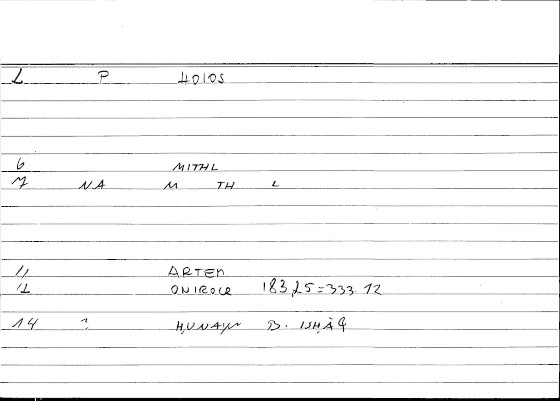 1 P 40105
6 MITHL
7 NA M TH L
11 ARTEM
12 ONIROCR 183,25=333.12
14 ? ḤUNAYN B. ISḤĀQ